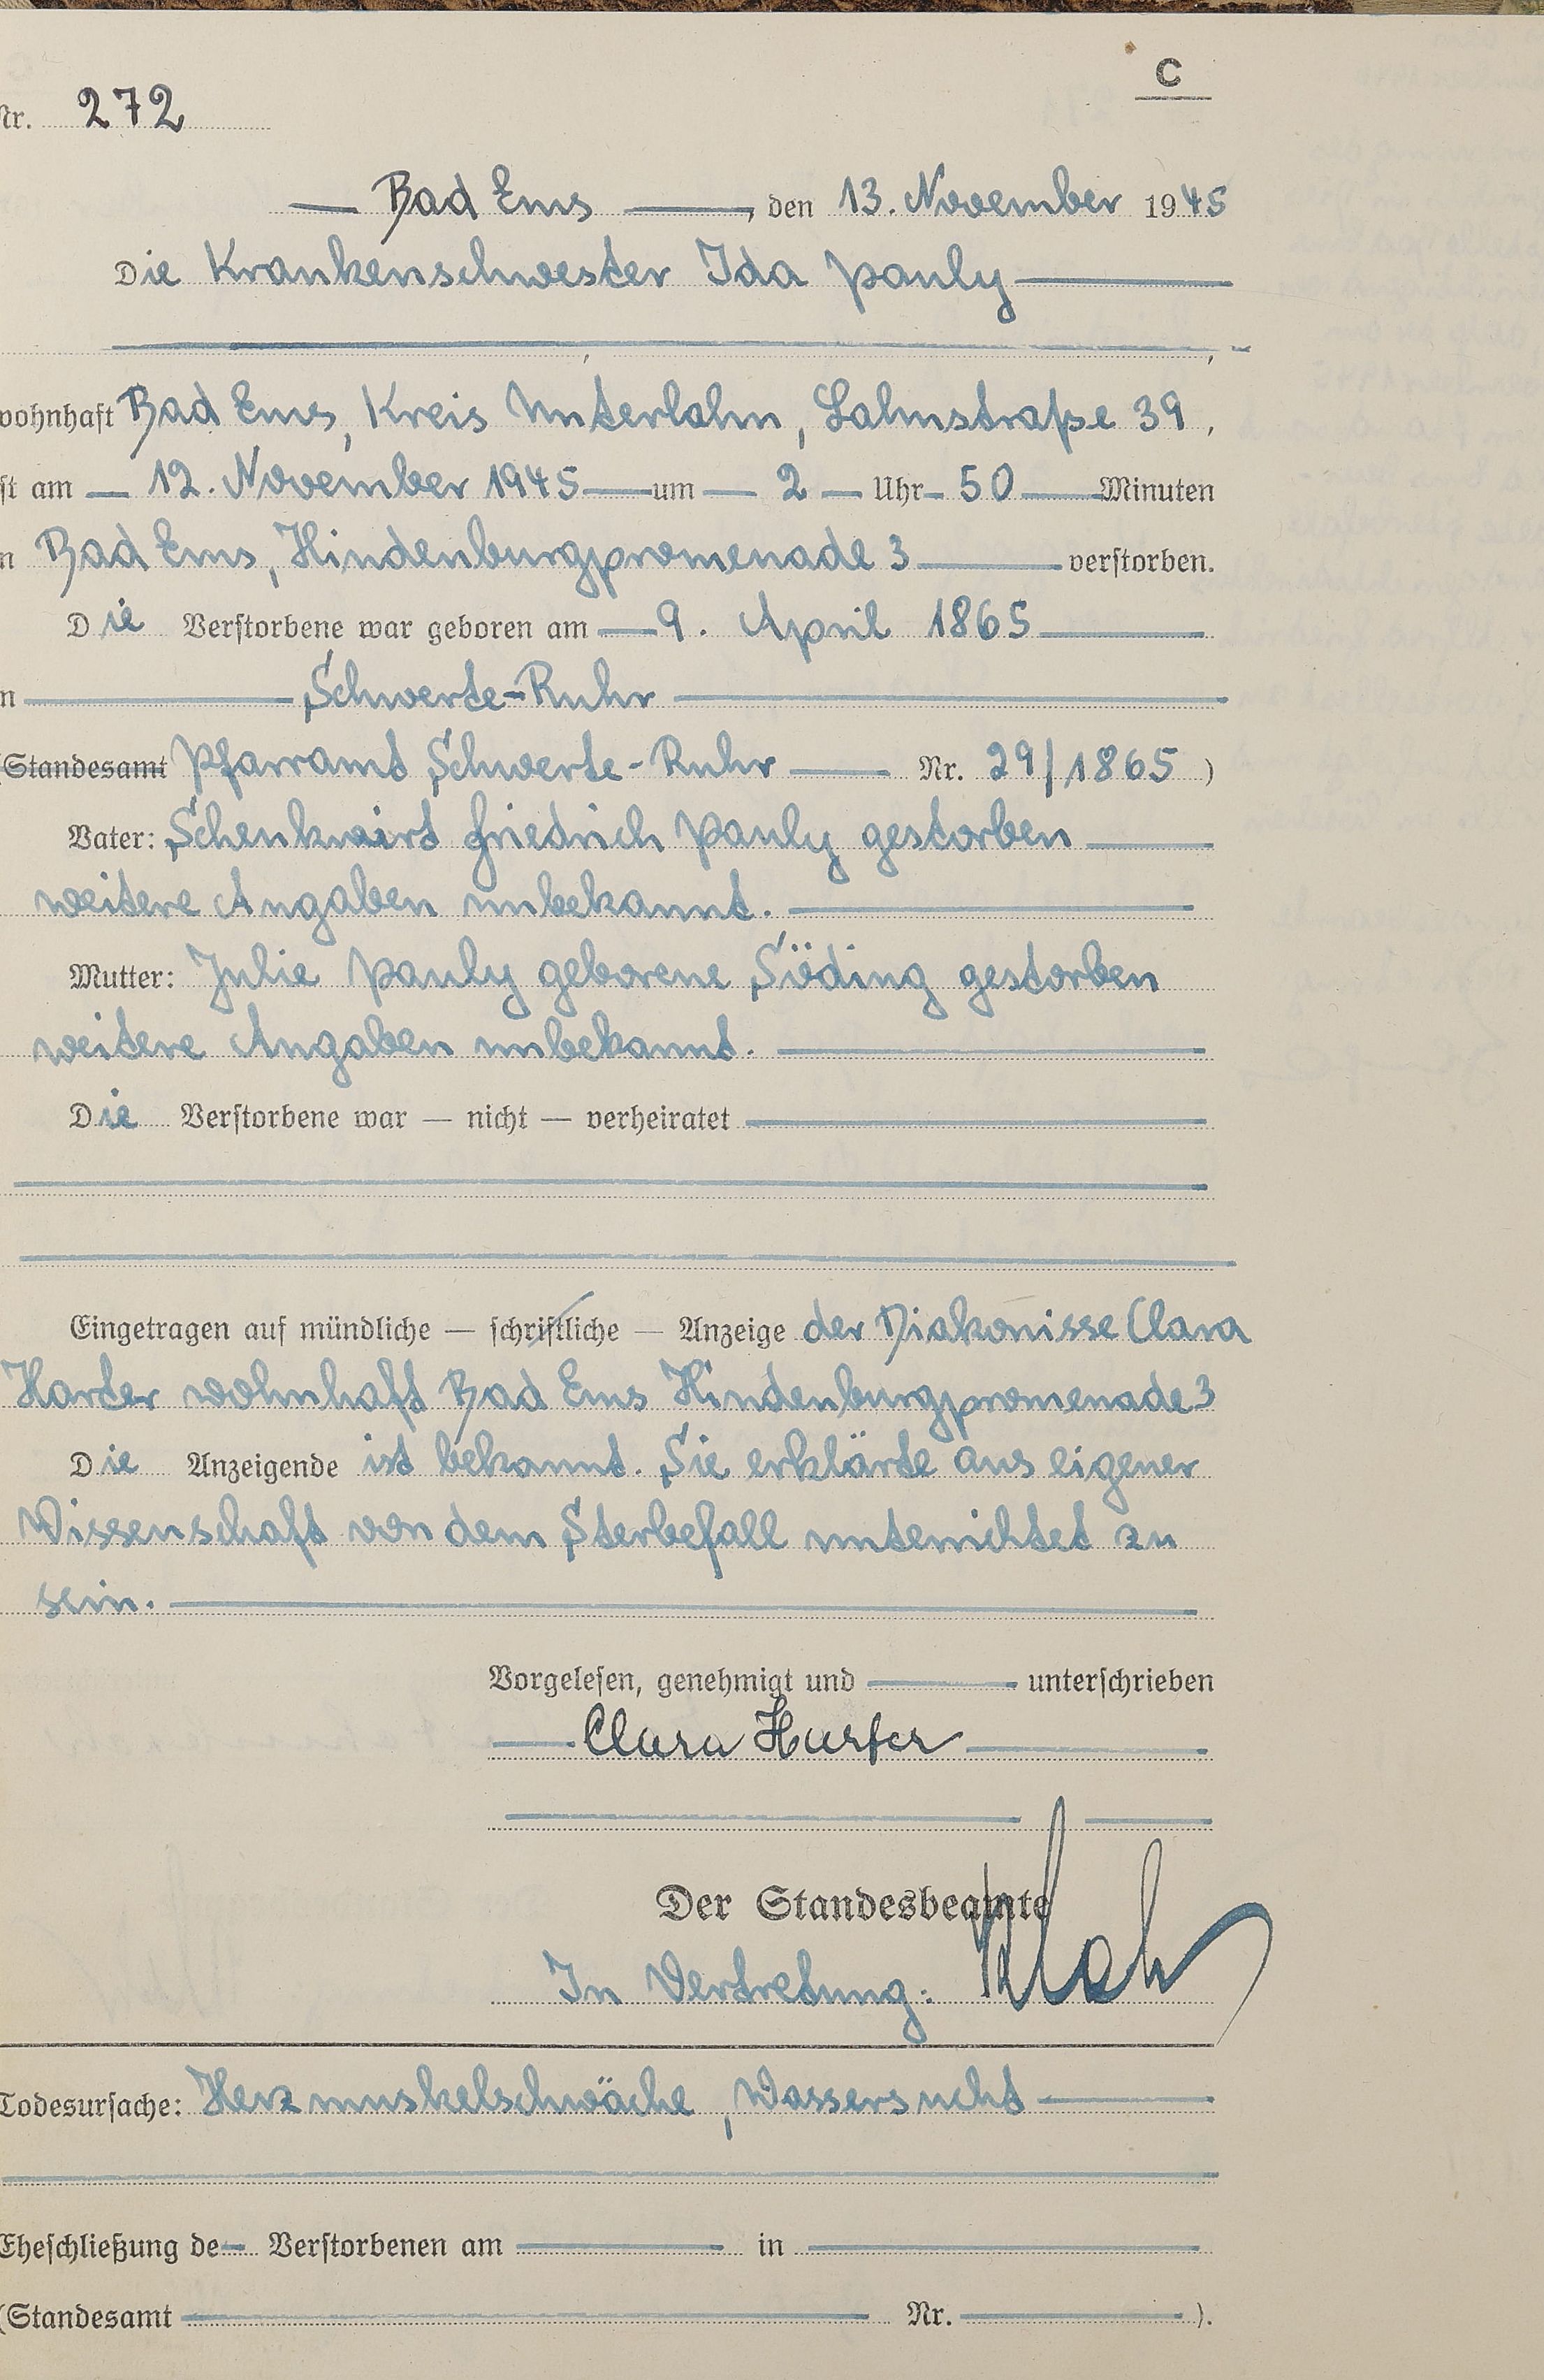 C
Nr. 272
Bad Ems, den 13. November 1945
Die Krankenschwester Ida Pauly
,
wohnhaft Bad Ems, Kreis Unterlahn, Lahnstraße 39,
st am 12. November 1945 um 2 Uhr 50 Minuten
n Bad Ems, Hindenburgpromenade 3 verstorben.
Die Verstorbene war geboren am 9. April 1865
n Schwerte-Ruhr
(Standesamt Pfarramt Schwerte-Ruhr Nr. 29/1865)
Vater: Schenkwirt Friedrich Pauly gestorben
weitere Angaben unbekannt.
Mutter: Julie Pauly geborene Söding gestorben
weitere Angaben unbekannt.
Die Verstorbene war — nicht — verheiratet
Eingetragen auf mündliche — schriftliche — Anzeige der Diakonisse Clara
Harter wohnhaft Bad Ems Hindenburgpromenade 3
Die Anzeigende ist bekannt. Sie erklärte aus eigener
Wissenschaft von dem Sterbefall unterrichtet zu
sein.
Vorgelesen, genehmigt und unterschrieben
Clara Harter
Der Standesbeamte
In Vertretung:
Todesursache: Herzmuskelschwäche, Wassersucht
Eheschließung de Verstorbenen am in
(Standesamt Nr. ).